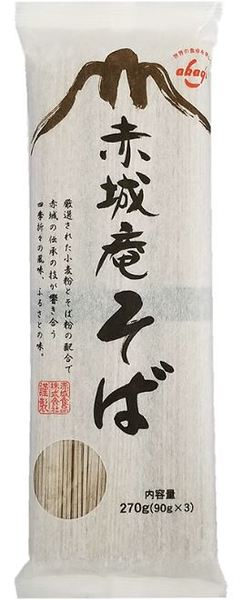 akagi
赤城庵そば
厳選された小麦粉とそば粉の配合で
赤城の伝承の技が響き合う
四季折々の風味、ふるさとの味。
赤城食品
株式会社
謹製
内容量
270g(90g×3)